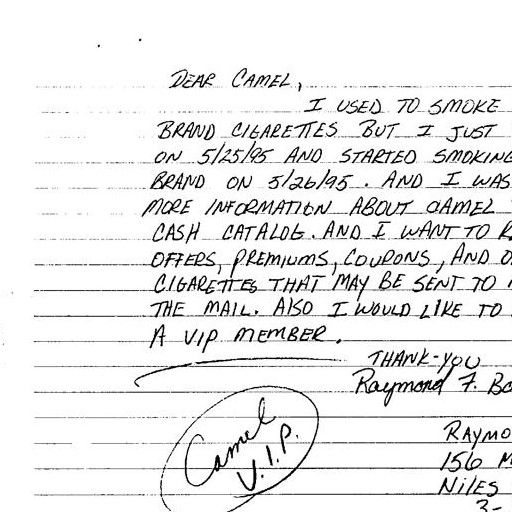 DEAR CAMEL,
I USED TO SMOKE
BRAND CIGARETTES BUT I JUST
ON 5/25/95 AND STARTED SMOKING
BRAND ON 5/26/95. AND I WAS
MORE INFORMATION ABOUT CAMEL
CASH CATALOG. AND I WANT TO
OFFERS, PREMIUMS, COUPONS, AND
CIGARETTES THAT MAY BE SENT TO
THE MAIL. ALSO I WOULD LIKE TO
A VIP MEMBER.
THANK-YOU
Raymond F. Bo
Camel
V.I.P.
RAYMO
156
NILES
3-